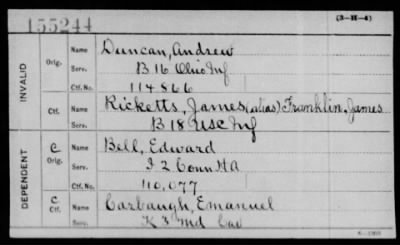 155244
(3-H-4)
INVALID
Orig.
Name Duncan, Andrew
Serv. B 16 Ohio Inf
Ctf. No. 114866
Ctf.
Name Ricketts, James (alias) Franklin, James
Serv. B 18 USC Inf
DEPENDENT
C
Orig.
Name Bell, Edward
Serv. I 2 Conn HA
Ctf. No. 110,077
C
Ctf.
Name Carbaugh, Emanuel
Serv. K 3 Md Cav